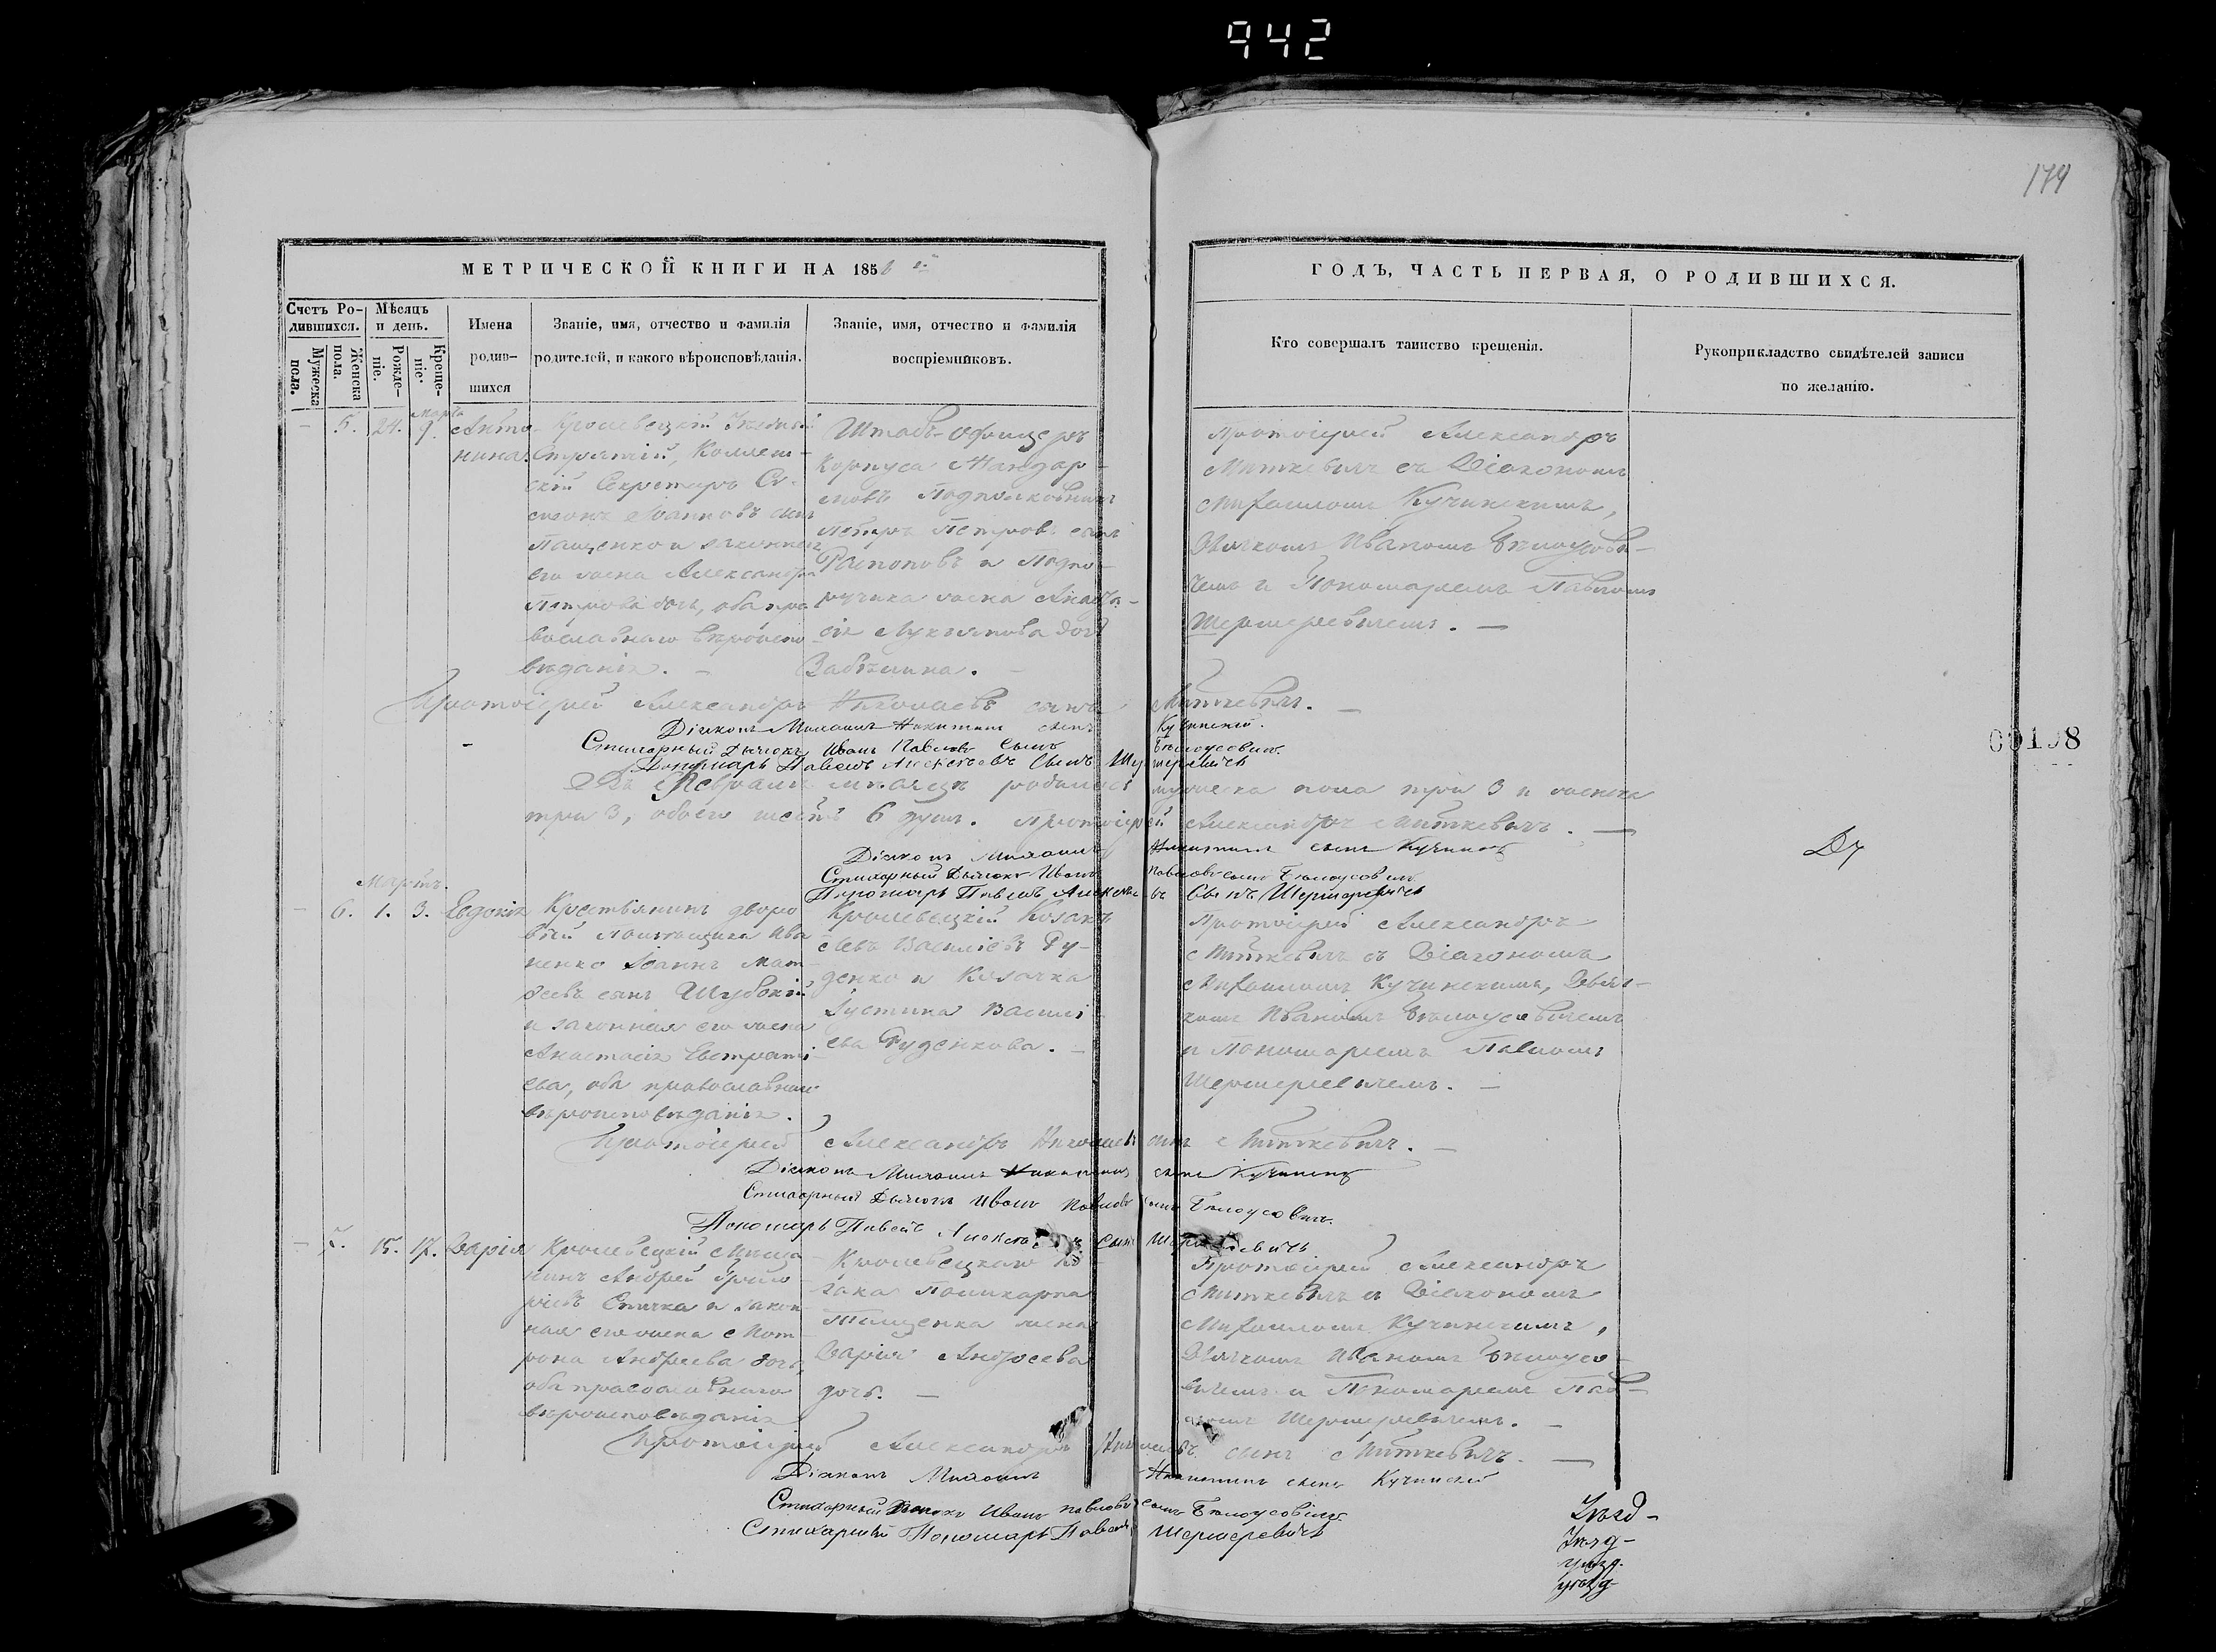 942
174
МЕТРИЧЕСКОЙ КНИГИ НА 1856 й
ГОДЪ, ЧАСТЬ ПЕРВАЯ, О РОДИВШИХСЯ.
Счетъ Ро-
дившихся.
Мужеска
пола.
Женска
пола.
Мѣсяцъ
и день.
Рожде-
ніе.
Креще-
ніе.
Имена
родив-
шихся
Званіе, имя, отчество и фамилія
родителей, и какого вѣроисповѣданія.
Званіе, имя, отчество и фамилія
воспріемниковъ.
Кто совершалъ таинство крещенія.
Рукоприкладство свидѣтелей записи
по желанію.
5. 24. Марта 9. Анто-
нина.
Кролевецкій Уѣздный
Стряпчій, Коллеж-
скій Секретарь Си-
меонъ Іоанновъ сынъ
Пащенко и законная
его жена Александра
Петрова дочь, оба пра
вославнаго вѣроиспо
вѣданія. —
Штабъ-Офицеръ
Корпуса Жандар-
мовъ Подполковникъ
Петръ Петровъ сынъ
Рапоповъ и Подпо-
ручика жена Анаста-
сія Лукьянова дочь
Забѣлина. —
Протоіерей Александръ
Миткевичъ съ Діакономъ
Михаиломъ Кучинскимъ,
Дьячкомъ Иваномъ Бѣлоусови-
чемъ и Пономаремъ Павломъ
Шермеревичемъ. —
Протоіерей Александръ Николаевъ сынъ Миткевичъ. —
Діаконъ Михаилъ Никитинъ сынъ Кучинскій.
Стихарный Дьячокъ Иванъ Павловъ сынъ Бѣлоусовичъ.
Пономарь Павелъ Алексѣевъ Сынъ Шермеревичъ
Въ Февралѣ мѣсяцѣ родилось мужеска пола три 3 и женска
три 3, обоего шесть 6 душъ. Протоіерей Александръ Миткевичъ. —
Діаконъ Михаилъ Никитинъ сынъ Кучинскій
Стихарный Дьячокъ Иванъ Павловъ сынъ Бѣлоусовичъ
Пономарь Павелъ Алексѣевъ Сынъ Шермеревичъ
00198
Мартъ.
6. 1. 3. Евдокія
Крестьянинъ дворо
вый помѣщика Ива
ненко Іоаннъ Мат-
ѳеевъ сынъ Шубокій
и законная его жена
Анастасія Евстраті-
ева, оба православнаго
вѣроисповѣданія.
Кролевецкій Козакъ
Левъ Василіевъ Ру-
денко и Козачка
Іустина Василі-
ева Руденкова. —
Протоіерей Александръ
Миткевичъ съ Діакономъ
Михаиломъ Кучинскимъ, Дьяч-
комъ Иваномъ Бѣлоусовичемъ
и Пономаремъ Павломъ
Шермеревичемъ. —
Протоіерей Александръ Николаевъ сынъ Миткевичъ. —
Діаконъ Михаилъ Никитинъ сынъ Кучинскій
Стихарный Дьячокъ Иванъ Павловъ сынъ Бѣлоусовичъ.
Пономарь Павелъ Алексѣевъ Сынъ Шермеревичъ
7. 15. 17. Дарія
Кролевецкій Мѣща-
нинъ Андрей Григо-
ріевъ Спичка и закон-
ная его жена Мат-
рона Андреева дочь,
оба православнаго
вѣроисповѣданія
Кролевецкаго Ко-
зака Поликарпа
Тищенка жена
Дарія Андреева
дочь. —
Протоіерей Александръ
Миткевичъ съ Діакономъ
Михаиломъ Кучинскимъ,
Дьячкомъ Иваномъ Бѣлоусо-
вичемъ и Пономаремъ Пав-
ломъ Шермеревичемъ. —
Протоіерей Александръ Николаевъ сынъ Миткевичъ. —
Діаконъ Михаилъ Никитинъ сынъ Кучинскій
Стихарный Дьячокъ Иванъ Павловъ сынъ Бѣлоусовичъ
Стихарный Пономарь Павелъ Шермеревичъ